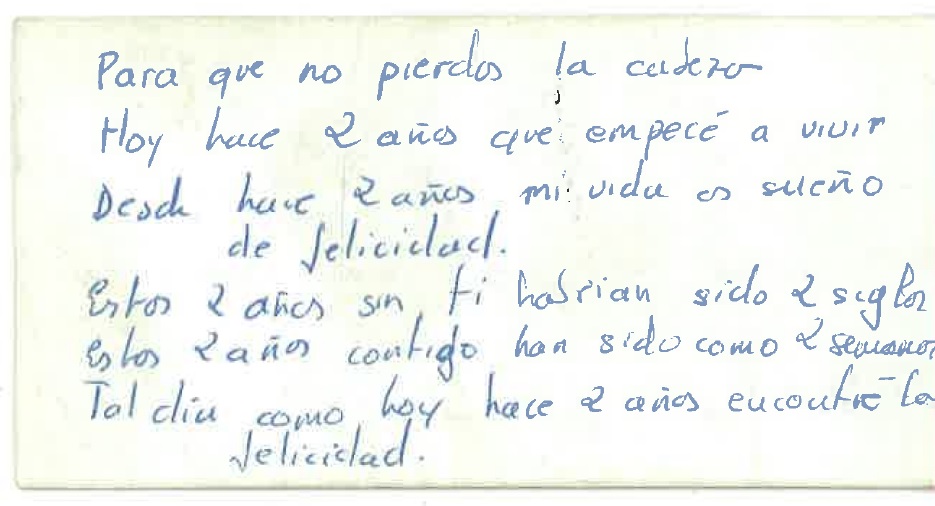 Para que no pierdas la cabeza
Hoy hace 2 años que empecé a vivir
Desde hace 2 años mi vida es sueño
de felicidad.
Estos 2 años sin ti habrian sido 2 siglos
Estos 2 años contigo han sido como 2 semanas
Tal dia como hoy hace 2 años encontré la
felicidad.